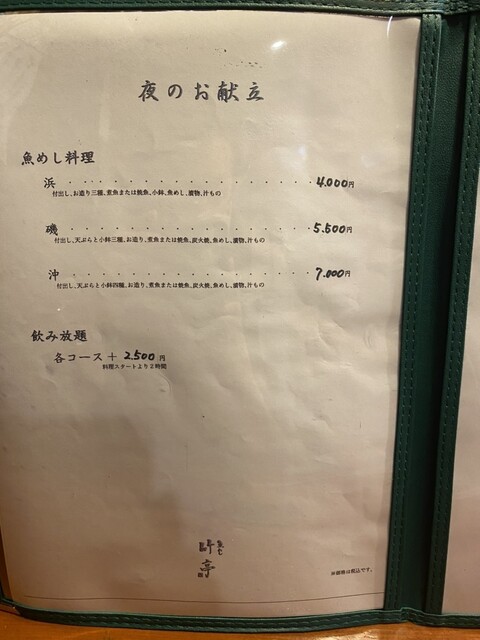 夜のお献立
魚めし料理
浜 ・・・・・・・・・・・・・・・・・ 4.000円
付出し、お造り三種、煮魚または焼魚、小鉢、魚めし、漬物、汁もの
磯 ・・・・・・・・・・・・・・・・・ 5.500円
付出し、天ぷらと小鉢三種、お造り、煮魚または焼魚、炭火焼、魚めし、漬物、汁もの
沖 ・・・・・・・・・・・・・・・・・ 7.000円
付出し、天ぷらと小鉢四種、お造り、煮魚または焼魚、炭火焼、魚めし、漬物、汁もの
飲み放題
各コース + 2.500円
料理スタートより2時間
亭
※価格は税込です。